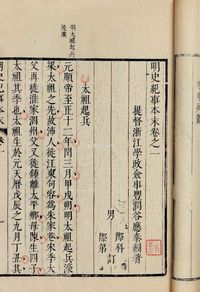 明史紀事本末卷之一
提督浙江學政僉事豐潤谷應泰編著
男 際科 際第 訂
太祖起兵
明太祖起兵
濠梁
元順帝至正十二年閏三月甲戌朔明太祖起兵濠
梁太祖之先故沛人徙江東句容爲朱家巷宋季大
父再徙淮家泗州父又徙鍾離太平鄉母陳生四子
太祖其季也太祖生於元天曆戊辰之九月丁丑其
明史紀事本末